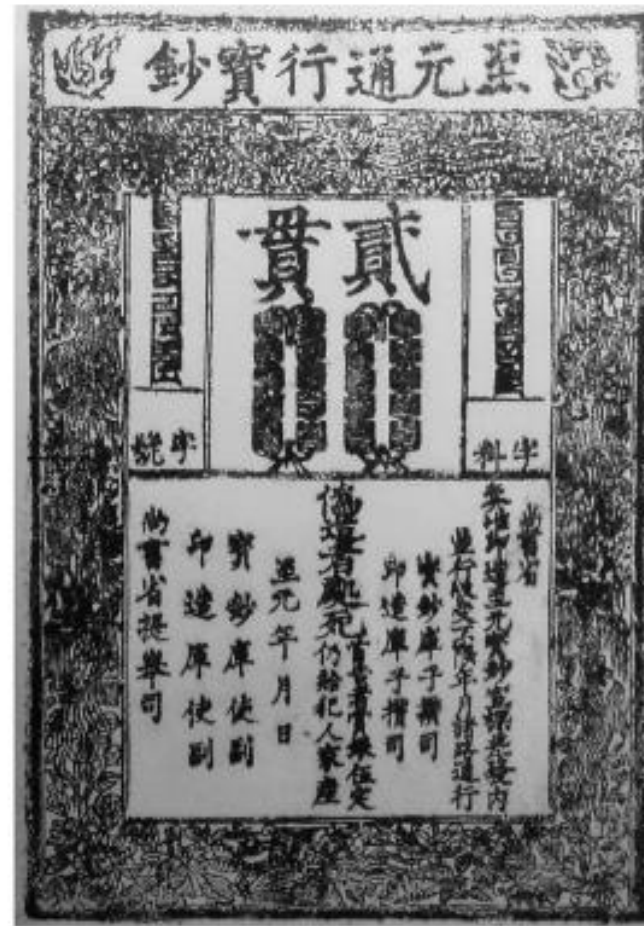 至元通行寶鈔
貳貫
字料
字號
尚書省
奏准印造至元寶鈔宣課差役內
並行收受不限年月諸路通行
寶鈔庫子攢司
印造庫子攢司
偽造者處死首告者賞銀伍定
仍給犯人家產
至元年月日
寶鈔庫使副
印造庫使副
尚書省提舉司